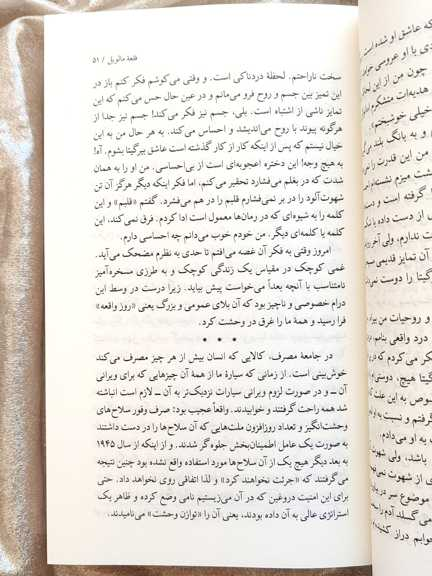 قلعهٔ مالویل / ۵۱
سخت ناراحتم. لحظهٔ دردناکی است. و وقتی می‌کوشم فکر کنم باز در
این تمیز بین جسم و روح فرو می‌مانم و در عین حال حس می‌کنم که این
تمایز ناشی از اشتباه است. بلی، جسم نیز فکر می‌کند! جسم نیز جدا از
هرگونه پیوند با روح می‌اندیشد و احساس می‌کند. به هر حال من به این
خیال نیستم که پس از اینکه کار از کار گذشته است عاشق بیرگیتا بشوم. آه!
به هیچ وجه! این دختره اعجوبه‌ای است از بی‌احساسی. من او را به همان
شدت که در بغلم می‌فشارد تحقیر می‌کنم، اما فکر اینکه دیگر هرگز آن تن
شهوت‌آلود را در بر نمی‌فشارم قلبم را در هم می‌فشرد. گفتم «قلبم» و این
کلمه را به شیوه‌ای که در رمان‌ها معمول است ادا کردم. فرق نمی‌کند، این
کلمه یا کلمه‌ای دیگر. من خودم خوب می‌دانم چه احساسی دارم.
امروز وقتی به فکر آن غصه می‌افتم تا حدی به نظرم مضحک می‌آید.
غمی کوچک در مقیاس یک زندگی کوچک و به طرزی مسخره‌آمیز
نامتناسب با آنچه بعداً می‌خواست پیش بیاید. زیرا درست در وسط این
درام خصوصی و ناچیز بود که آن بلای عمومی و بزرگ یعنی «روز واقعه»
فرا رسید و همهٔ ما را غرق در وحشت کرد.
• • •
در جامعهٔ مصرف، کالایی که انسان بیش از هر چیز مصرف می‌کند
خوش‌بینی است. از زمانی که سیارهٔ ما از همهٔ آن چیزهایی که برای ویرانی
آن ــ و در صورت لزوم ویرانی سیارات نزدیک‌تر به آن ــ لازم است انباشته
شد همه راحت گرفتند و خوابیدند. واقعاً عجیب بود: صرف وفور سلاح‌های
وحشت‌انگیز و تعداد روزافزون ملت‌هایی که آن سلاح‌ها را در دست داشتند
به صورت یک عامل اطمینان‌بخش جلوه‌گر شدند. و از اینکه از سال ۱۹۴۵
به بعد دیگر هیچ یک از آن سلاح‌ها مورد استفاده واقع نشده بود چنین نتیجه
می‌گرفتند که «جرئت نخواهند کرد» و لذا اتفاقی روی نخواهد داد. حتی
برای این امنیت دروغین که در آن می‌زیستیم نامی وضع کرده و ظاهر یک
استراتژی عالی به آن داده بودند، یعنی آن را «توازن وحشت» می‌نامیدند.